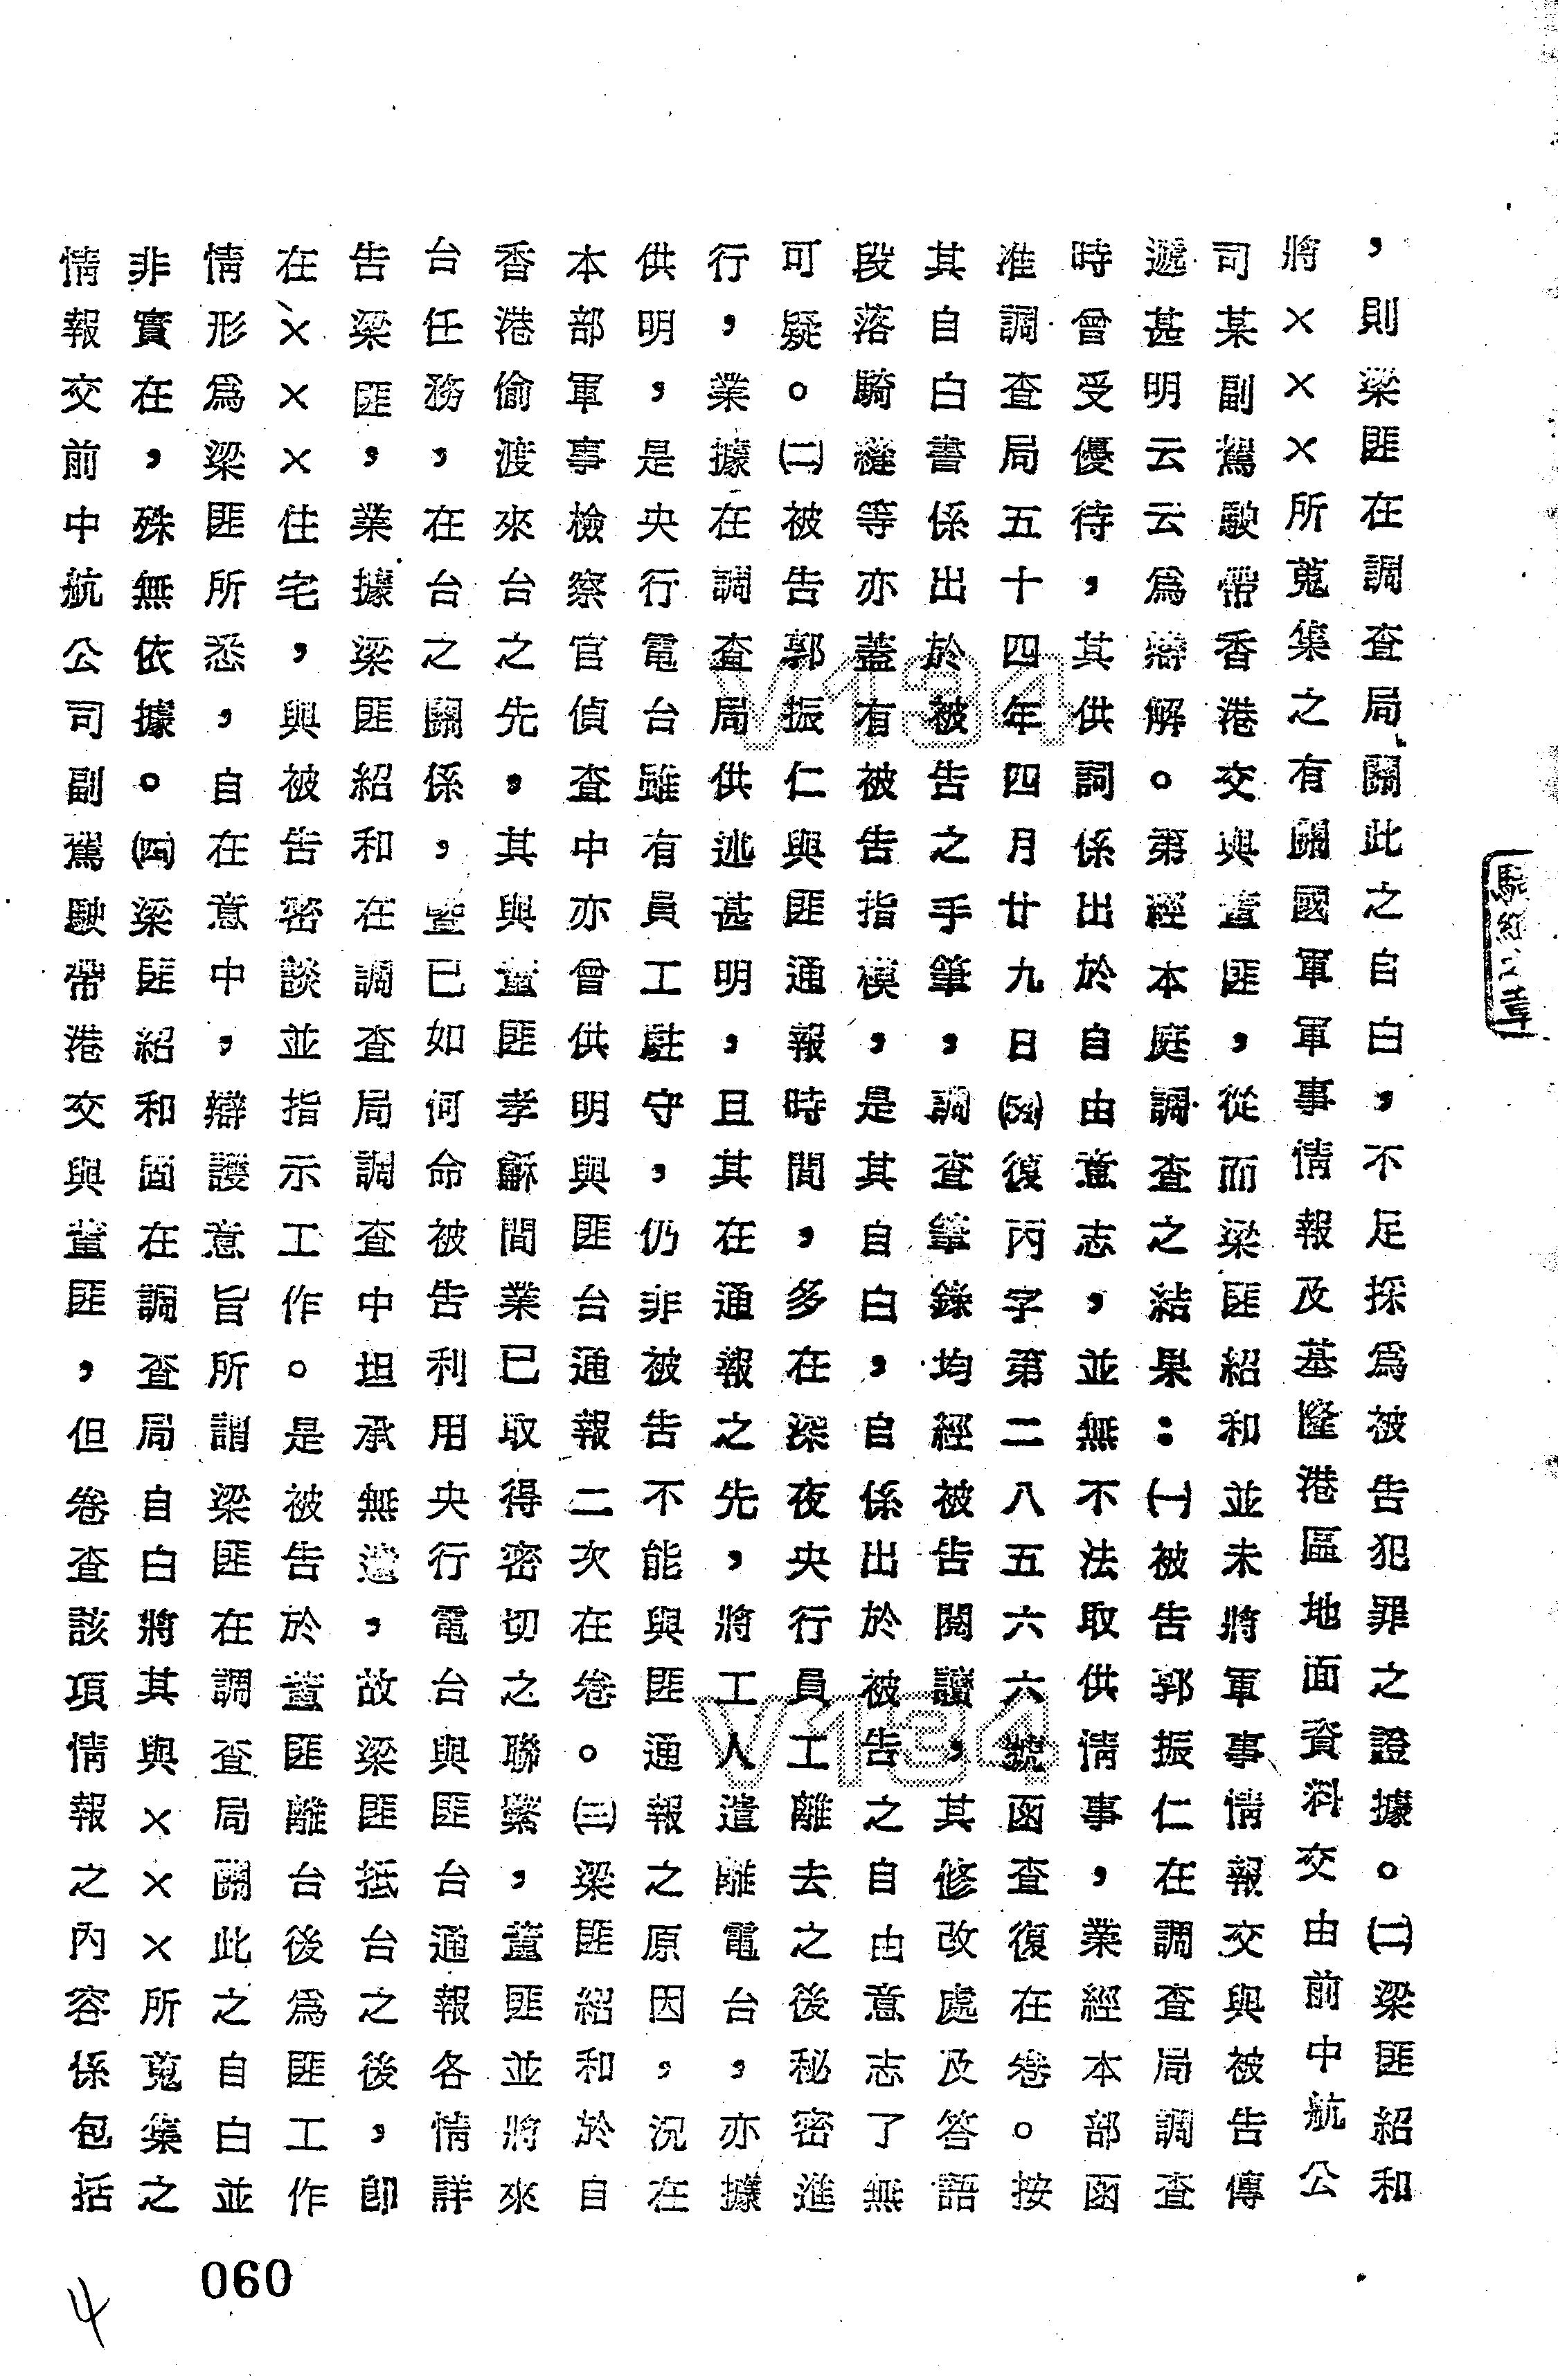 ，則梁匪在調查局關此之自白，不足採爲被告犯罪之證據。㈡梁匪紹和
將×××所蒐集之有關國軍軍事情報及基隆港區地面資料交由前中航公
司某副駕駛帶香港交與董匪，從而梁匪紹和並未將軍事情報交與被告傳
遞甚明云云爲辯解。第經本庭調查之結果：㈠被告郭振仁在調查局調查
時曾受優待，其供詞係出於自由意志，並無不法取供情事，業經本部函
准調查局五十四年四月廿九日(54)復丙字第二八五六六號函查復在卷。按
其自白書係出於被告之手筆，調查筆錄均經被告閱讀，其修改處及答語
段落騎縫等亦蓋有被告指模，是其自白，自係出於被告之自由意志了無
可疑。㈡被告郭振仁與匪通報時間，多在深夜央行員工離去之後秘密進
行，業據在調查局供述甚明，且其在通報之先，將工人遣離電台，亦據
供明，是央行電台雖有員工駐守，仍非被告不能與匪通報之原因，況在
本部軍事檢察官偵查中亦曾供明與匪台通報二次在卷。㈢梁匪紹和於自
香港偷渡來台之先，其與董匪孝龢間業已取得密切之聯繫，董匪並將來
台任務，在台之關係，暨已如何命被告利用央行電台與匪台通報各情詳
告梁匪，業據梁匪紹和在調查局調查中坦承無遺，故梁匪抵台之後，卽
在×××住宅，與被告密談並指示工作。是被告於董匪離台後爲匪工作
情形爲梁匪所悉，自在意中，辯護意旨所謂梁匪在調查局關此之自白並
非實在，殊無依據。㈣梁匪紹和固在調查局自白將其與×××所蒐集之
情報交前中航公司副駕駛帶港交與董匪，但卷查該項情報之內容係包括
060
4
騎縫之章
V134
V134